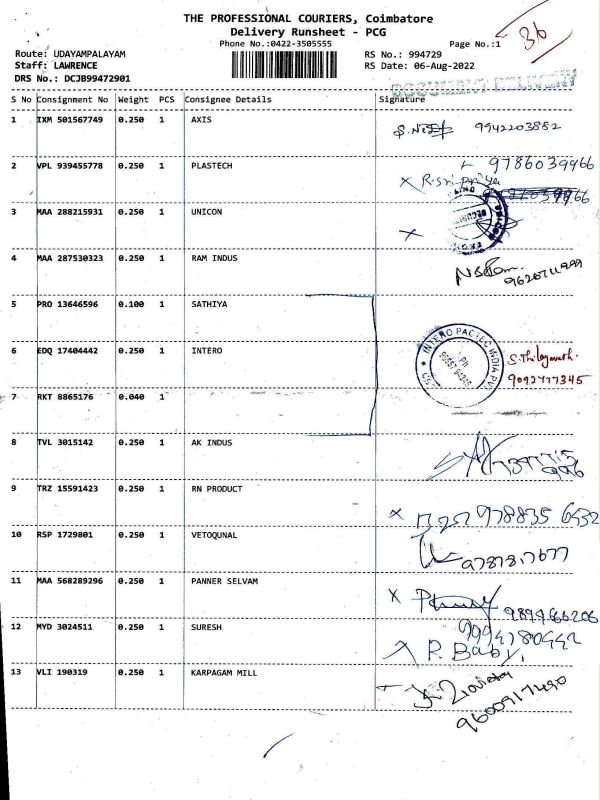 THE PROFESSIONAL COURIERS, Coimbatore
Delivery Runsheet - PCG
36
Phone No.:0422-3505555
Page No.:1
Route: UDAYAMPALAYAM
RS No.: 994729
Staff: LAWRENCE
RS Date: 06-Aug-2022
DRS No.: DCJB99472901
DOCUMENT DELIVERY
S No Consignment No Weight PCS Consignee Details Signature
1 IXM 501567749 0.250 1 AXIS 9942203882
2 VPL 939455778 0.250 1 PLASTECH 9786039966
x R.Sri priya
3 MAA 288215931 0.250 1 UNICON x
4 MAA 287530323 0.250 1 RAM INDUS
5 PRO 13646596 0.100 1 SATHIYA
6 EDQ 17404442 0.250 1 INTERO INTERO PACTEC INDIA PV
9092477345
7 RKT 8865176 0.040 1
8 TVL 3015142 0.250 1 AK INDUS
9 TRZ 15591423 0.250 1 RN PRODUCT x 978835 6532
10 RSP 1729801 0.250 1 VETOQUNAL
9787817677
11 MAA 568289296 0.250 1 PANNER SELVAM x
12 MYD 3024511 0.250 1 SURESH
x P. Baby.
13 VLI 190319 0.250 1 KARPAGAM MILL
9600917490